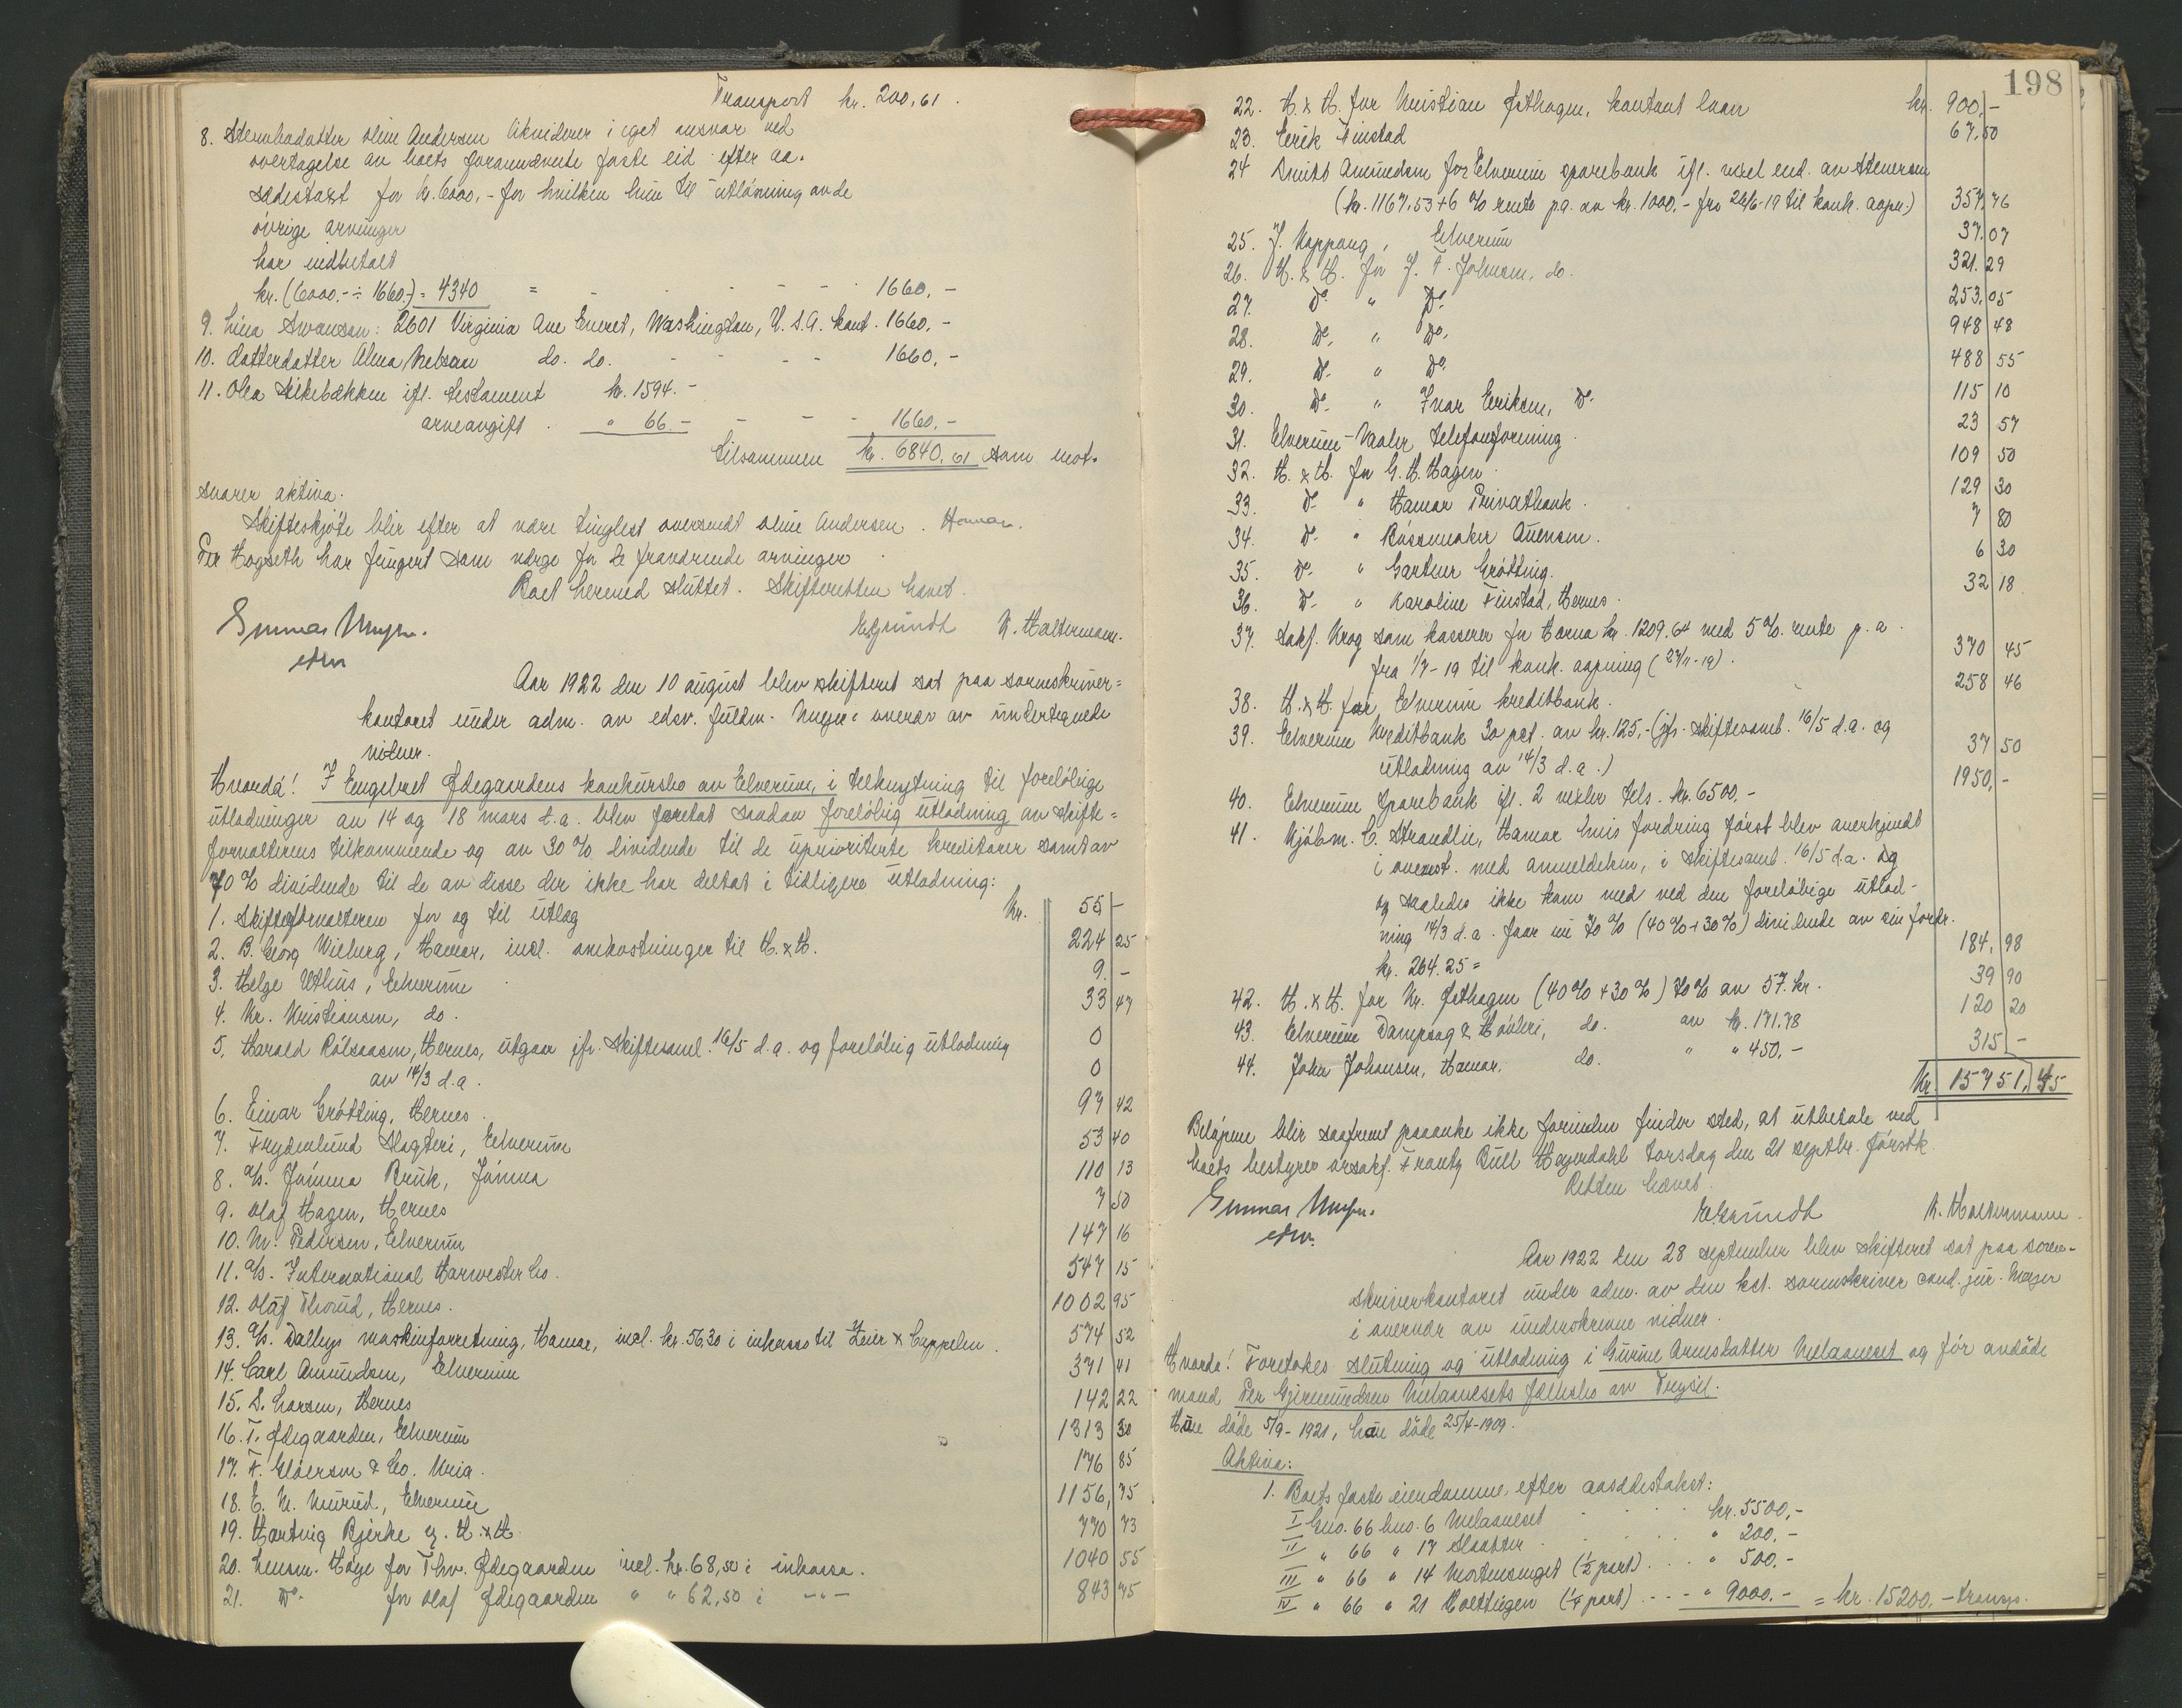 Transport kr. 200,61.
8. Stenbodatter Oline Andersen likviderer i eget ansvar ved
overtagelse av boets forannævnte faste eid efter aa.
sædestaxt for kr. 6000,- for hvilken hun til utløsning av de
övrige arvinger
har indbetalt
kr. (6000.- ÷ 1660.-) = 4340 = - - - - 1660,-
9. Lina Swanson: 2601 Virginia Ave Everet, Washington, U.S.A. kont. 1660,-
10. datterdatter Alma Nelson do. do. - - - - 1660,-
11. Olea Stikebækken ifl. testament kr. 1594.-
arveavgift . " 66.- - - - 1660,-
tilsammen kr. 6840,61 som mot-
svarer aktiva.
Skifteskjöte blir efter at være tinglest oversendt Oline Andersen.
Per Hogseth har fungert som værge for de fraværende arvinger.
Boet hermed sluttet. Skifteretten hævet.
Gunnar Meyer. EGrundt K. Haltermann.
edsv
Aar 1922 den 10 august blev skifteret sat paa sorenskriver=
kontoret under adm. av edsv. fuldm. Meyer i overvær av undertegnede
vidner.
Hvorda! I Engebret Ødegaardens konkursbo av Elverum, i tilknytning til forelöbige
utlodninger av 14 og 18 mars d.a. blev foretat saadan forelöbig utlodning av skifte=
forvalterens tilkommende og av 30% dividende til de uprioriterte kreditorer samt av
70% dividende til de av disse der ikke har deltat i tidligere utlodning:
1. Skifteforvalteren for og til utlæg kr. 55 -
2. B. Georg Wiberg, Hamar, incl. omkostninger til H. & H. 224 25
3. Helge Uthus, Elverum 9. -
4. Kr. Kristiansen, do. 33 47
5. Harald Rölsaasen, Hernes, utgaar jfr. skiftesaml. 16/5 d.a. og forelöbig utlodning 0
av 14/3 d.a. 0
6. Einar Grötting, Hernes. 97 42
7. Frydenlund Slagteri, Elverum 53 40
8. A/s. Jömna Bruk, Jömna 110 13
9. Olaf Hagen, Hernes 7 50
10. M. Pedersen, Elverum 147 16
11. A/s. International Harvester Co. 547 15
12. Olaf Thorud, Hernes. 1002 95
13. A/s. Dallys maskinforretning, Hamar, incl. kr. 56,30 i inkasso til Heier & Cappelen. 574 52
14. Carl Amundsen, Elverum 371 41
15. S. Larsen, Hernes 142 22
16. T. Ødegaarden, Elverum 1313 30
17. F. Glöersen & Co. Kria. 176 85
18. E. N. Murud, Elverum 1156, 75
19. Hartvig Bjerke v. H. & H. 770 73
20. Lensm. Hoye for Thv. Ødegaarden incl. kr. 68,50 i inkasso. 1040 55
21. Do. for Olaf Ødegaarden " " 62,50 i -"- 843 75
198
22. H. & H. for Kristian Østhagen, kontant laan kr. 900,-
23. Eerik Finstad 67,50
24 Smits Amundsen for Elverum sparebank ifl. vexel end. av Stenersen
(kr. 1167,53 + 6 % rente p.a. av kr. 1000.- fra 26/6-19 til konk. aapn.) 357,76
25. J. Koppang, Elverum 37.07
26. H. & H. for J. F. Johnsen, do. 321.29
27. Do. " Do. 253,05
28. Do. " Do. 948 48
29. Do. " Do. 488 55
30. Do. " Ivar Eriksen, Do. 115 10
31. Elverum-Vaaler telefonforening. 23 57
32. H. & H. for G. H. Hagen. 109 50
33. Do. " Hamar Privatbank. 129 30
34. Do. " Bössmaker Auensen. 7 80
35. Do. " Gartner Grötting. 6 30
36. Do. " Karoline Finstad, Hernes. 32 18
37. Sakf. Krog som kasserer for Horna kr. 1209.64 med 5%. rente p.a.
fra 1/7-19 til konk. aapning (27/11-19). 370 45
38. H. & H. for Elverum kreditbank. 258 46
39. Elverum Kreditbank 30 pct. av kr. 125,- (jfr. skiftesaml. 16/5 d.a. og
utlodning av 14/3 d.a.) 37 50
40. Elverum sparebank ifl. 2 vexler tils. kr. 6500.- 1950,-
41. Kjöbm. C. Strandlie, Hamar hvis fordring först blev anerkjendt
i overenst. med anmeldelsen, i skiftesaml. 16/5 d.a. og
og saaledes ikke kom med ved den forelöbige utlod-
ning 14/3 d.a. faar nu 70% (40% + 30%) dividende av sin fordr.
kr. 264.25 = 184,98
42. H. & H. for Kr. Østhagen (40% + 30%) 70% av 57. kr. 39 90
43. Elverum Dampsag & Hövleri, do. av kr. 171.78 120 20
44. John Johansen, Hamar. do. " " 450,- 315 -
Kr. 15751,45
Belöpene blir saafremt paaanke ikke forinden finder sted, at utbetale ved
boets bestyrer orsakf. Frantz Bull Hejerdahl torsdag den 21 septbr. förstk.
Retten hævet.
Gunnar Meyer. EGrundt K. Haltermann.
edsv.
Aar 1922 den 28 september blev skifteret sat paa soren-
skriverkontoret under adm. av den kst. sorenskriver cand. jur. Meyer
i overvær av underskrevne vidner.
Hvorda! Foretokes slutning og utlodning i Gurine Arnesdatter Melaaneset og för avdöde
mand Per Gjermundsen Melaanesets fællesbo av Trysil.
Hun döde 5/9-1921, han döde 25/4-1909.
Aktiva:
1. Boets faste eiendomme efter aasædestakst:
I Gno. 66 bno. 6 Melaaneset - - kr. 5500,-
II " 66 " 17 Slaatten . . . " 200.-
III " 66 " 14 Mortensenget (1/2 part) . . . " 500.-
IV " 66 " 21 Kolttjegen (1/4 part) - - - " 9000.- = kr. 15200.- transp.